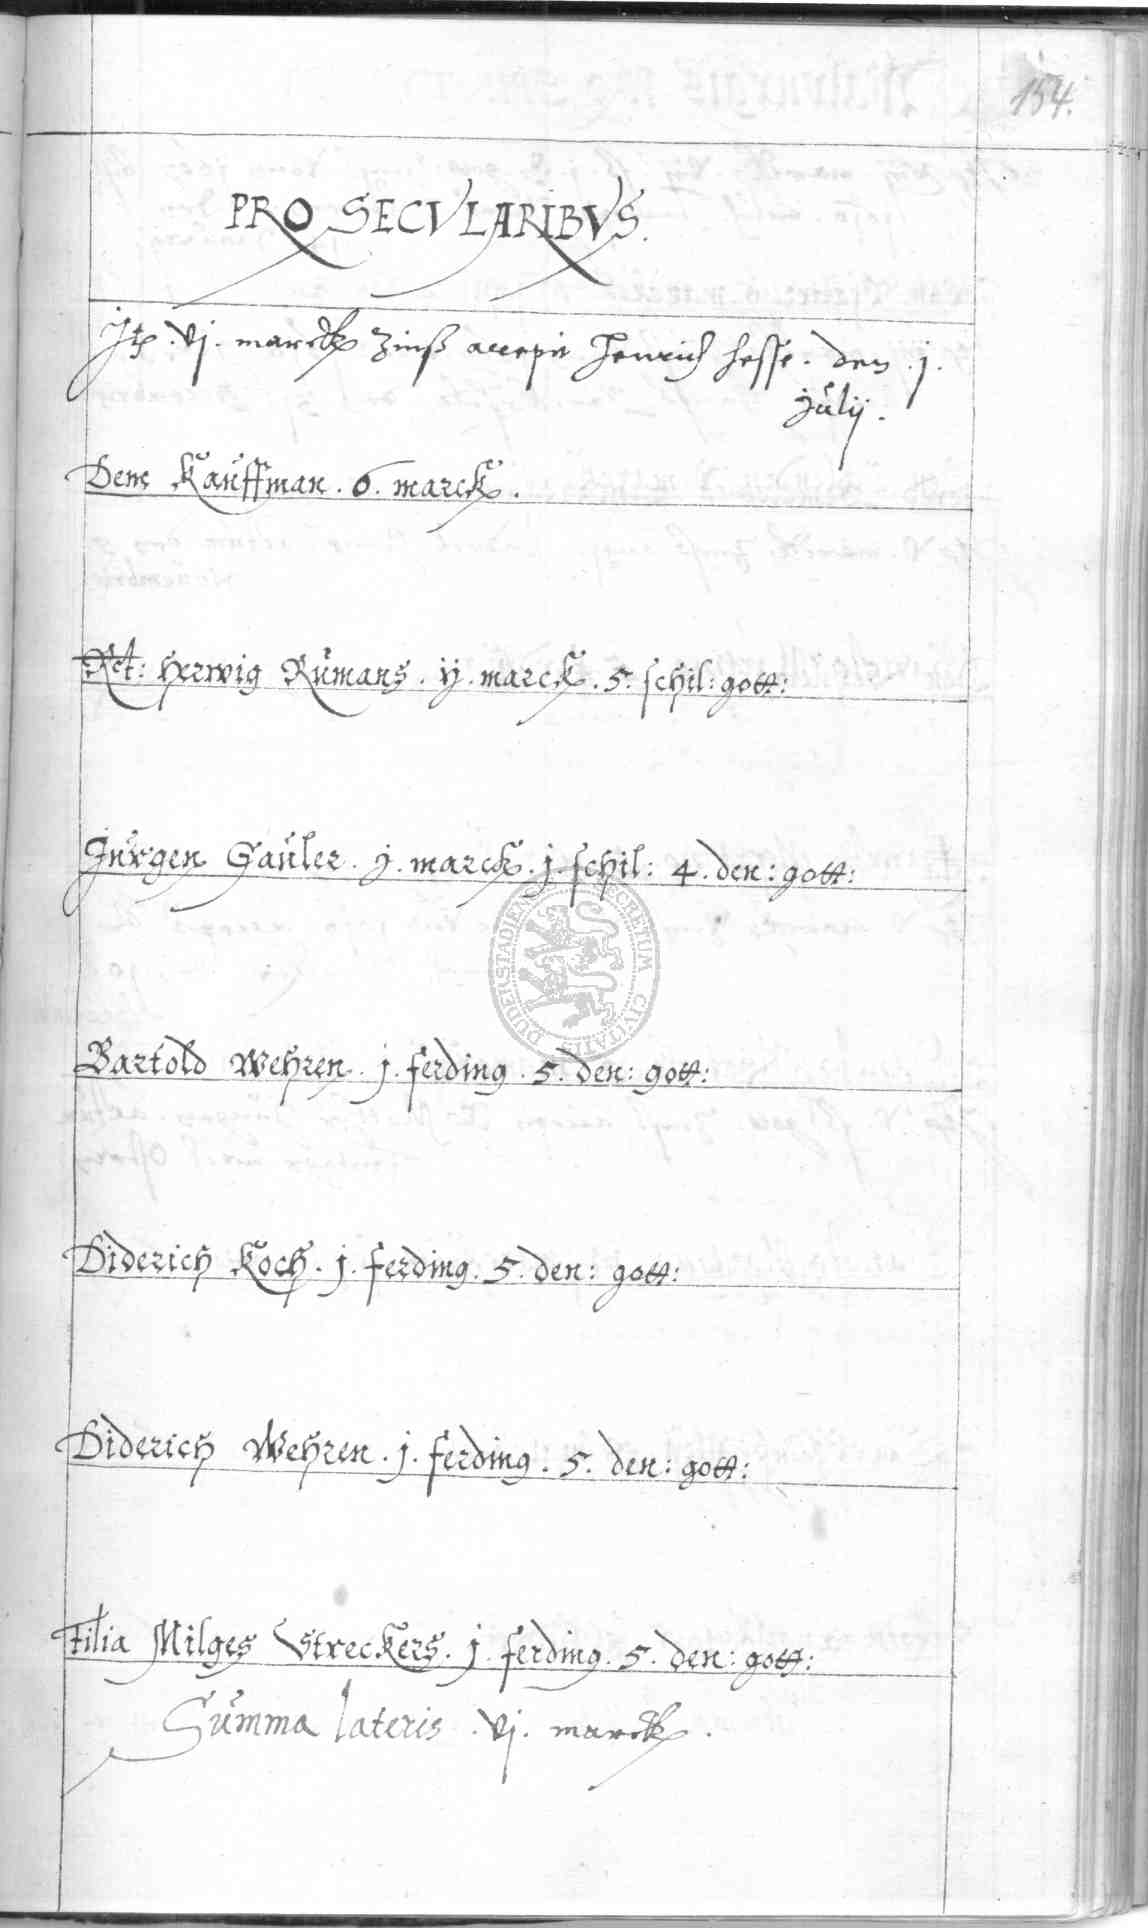 154.
PRO SECVLARIBVS.
Jt. vj. marck Zinß accepit Henrich hesse. den .j.
Julij.
Dem Kauffman. 6. marck.
Rct: Herwig Rumans. ij. marck. 5. schil: gott:
Jurgen Gauler. j. marck. j. schil: 4. den: gott:
DUDERSTADIENSIS SECRETUM CIVITATIS
Bartold Wehren. j. ferding. 5. den: gott:
Diderich Koch. j. ferding. 5. den: gott:
Diderich Wehren. j. ferding. 5. den: gott:
Filia Milges Streckers. j. ferding. 5. den: gott:
Summa lateris .vj. marck.